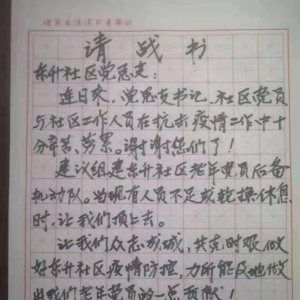 请战书
东升社区党总支：
连日来，党总支书记、社区党员
与社区工作人员在抗击疫情工作中十
分辛苦、劳累。谢谢您们了！
建议组建东升社区老年党员后备
机动队。当现有人员不足或轮换休息
时，让我们顶上去。
让我们众志成城，共克时艰，做
好东升社区疫情防控，力所能及地做
出我们老年党员的一点贡献！